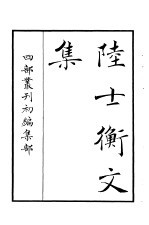 陸士衡文
集
四部叢刊初編集部